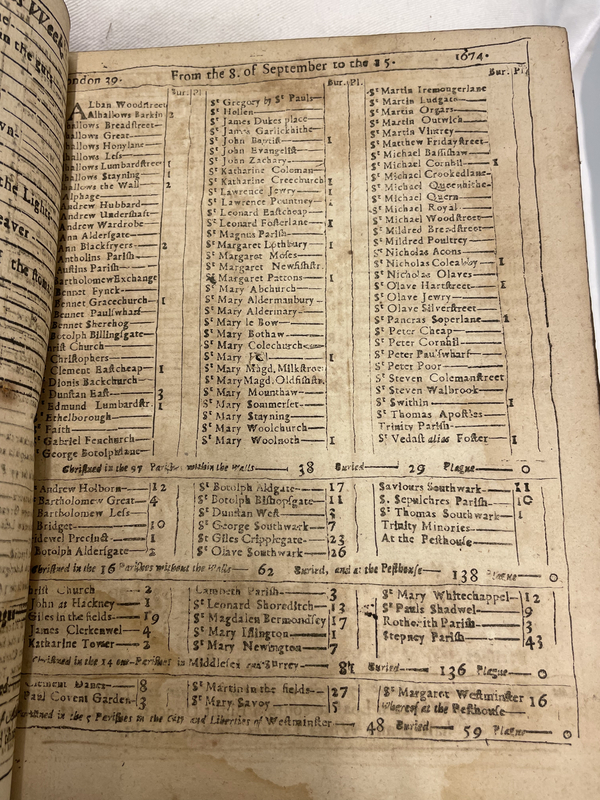 ondon 39. From the 8. of September to the 15. 1674.
Bur. Pl.
Bur. Pl.
Bur. Pl.
Alban Woodstreet
Alhallows Barkin 2
hallows Breadstreet
hallows Great
hallows Honylane
hallows Less
hallows Lumbardstreet 1
hallows Stayning 1
hallows the Wall 2
Alphage
Andrew Hubbard
Andrew Undershaft
Andrew Wardrobe
Ann Aldersgate
Ann Blackfryers 2
Antholins Parish
Austins Parish
artholomewExchange
Bennet Fynck
Bennet Gracechurch 1
Bennet Paulswharf
Bennet Sherehog
Botolph Billingsgate
rist Church
Christophers
Clement Eastcheap 1
Dionis Backchurch
Dunstan East 3
Edmund Lumbardstr. 1
Ethelborough
Faith
Gabriel Fenchurch
George Botolphlane
St Gregory by St Pauls
St Hellen
St James Dukes place
St James Garlickhithe
St John Baptist 1
St John Evangelist
St John Zachary
St Katharine Coleman
St Katharine Creechurch 1
St Lawrence Jewry 1
St Lawrence Pountney 2
St Leonard Eastcheap
St Leonard Fosterlane 1
St Magnus Parish
St Margaret Lothbury 1
St Margaret Moses
St Margaret Newfishstr.
St Margaret Pattons 1
St Mary Abchurch
St Mary Aldermanbury
St Mary Aldermary
St Mary le Bow
St Mary Bothaw
St Mary Colechurch
St Mary 1
St Mary Magd. Milkstreet
St Mary Magd. Oldfishstr.
St Mary Mounthaw
St Mary Sommerset
St Mary Stayning
St Mary Woolchurch
St Mary Woolnoth 1
St Martin Iremongerlane
St Martin Ludgate
St Martin Orgars
St Martin Outwich
St Martin Vintrey
St Matthew Fridaystreet
St Michael Bassishaw
St Michael Cornhil 1
St Michael Crookedlane
St Michael Queenhithe
St Michael Quern
St Michael Royal
St Michael Woodstreet
St Mildred Breadstreet
St Mildred Poultrey
St Nicholas Acons
St Nicholas Coleabby 1
St Nicholas Olaves
St Olave Hartstreet 1
St Olave Jewry
St Olave Silverstreet
St Pancras Soperlane 1
St Peter Cheap
St Peter Cornhil
St Peter Paulswharf
St Peter Poor
St Steven Colemanstreet
St Steven Walbrook
St Swithin 1
St Thomas Apostles
Trinity Parish
St Vedast alias Foster 1
Christned in the 97 Parishes within the Walls 38 Buried 29 Plague 0
Andrew Holborn 12
Bartholomew Great 4
Bartholomew Less
Bridget 10
idewel Precinct 1
Botolph Aldersgate 2
St Botolph Aldgate 17
St Botolph Bishopsgate 11
St Dunstan West 3
St George Southwark 7
St Giles Cripplegate 23
St Olave Southwark 26
Saviours Southwark 11
S. Sepulchres Parish 10
St Thomas Southwark 1
Trinity Minories
At the Pesthouse
Christned in the 16 Parishes without the Walls 62 Buried, and at the Pesthouse 138 Plague 0
hrist Church 2
John at Hackney 1
Giles in the fields 19
James Clerkenwel 4
Katharine Tower 2
Lambeth Parish 3
St Leonard Shoreditch 13
St Magdalen Bermondsey 17
St Mary Islington 1
St Mary Newington 7
St Mary Whitechappel 12
St Pauls Shadwel 9
Rotherith Parish 3
Stepney Parish 43
Christned in the 14 out-Parishes in Middlesex and Surrey 81 Buried 136 Plague 0
Clement Danes 8
Paul Covent Garden 3
St Martin in the fields 27
St Mary Savoy 5
St Margaret Westminster 16
Whereof at the Pesthouse
Christned in the 5 Parishes in the City and Liberties of Westminster 48 Buried 59 Plague 0